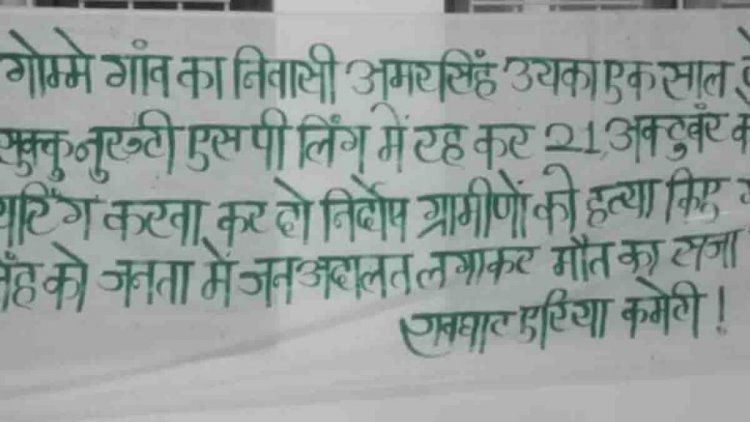 गोम्मे गांव का निवासी अमरसिंह उयका एक साल
नुरुटी एस पी लिंग में रह कर 21, अक्टुबर
करवा कर दो निर्दोष ग्रामीणों की हत्या किए
को जनता में जन अदालत लगाकर मौत का सजा
एरिया कमेटी !